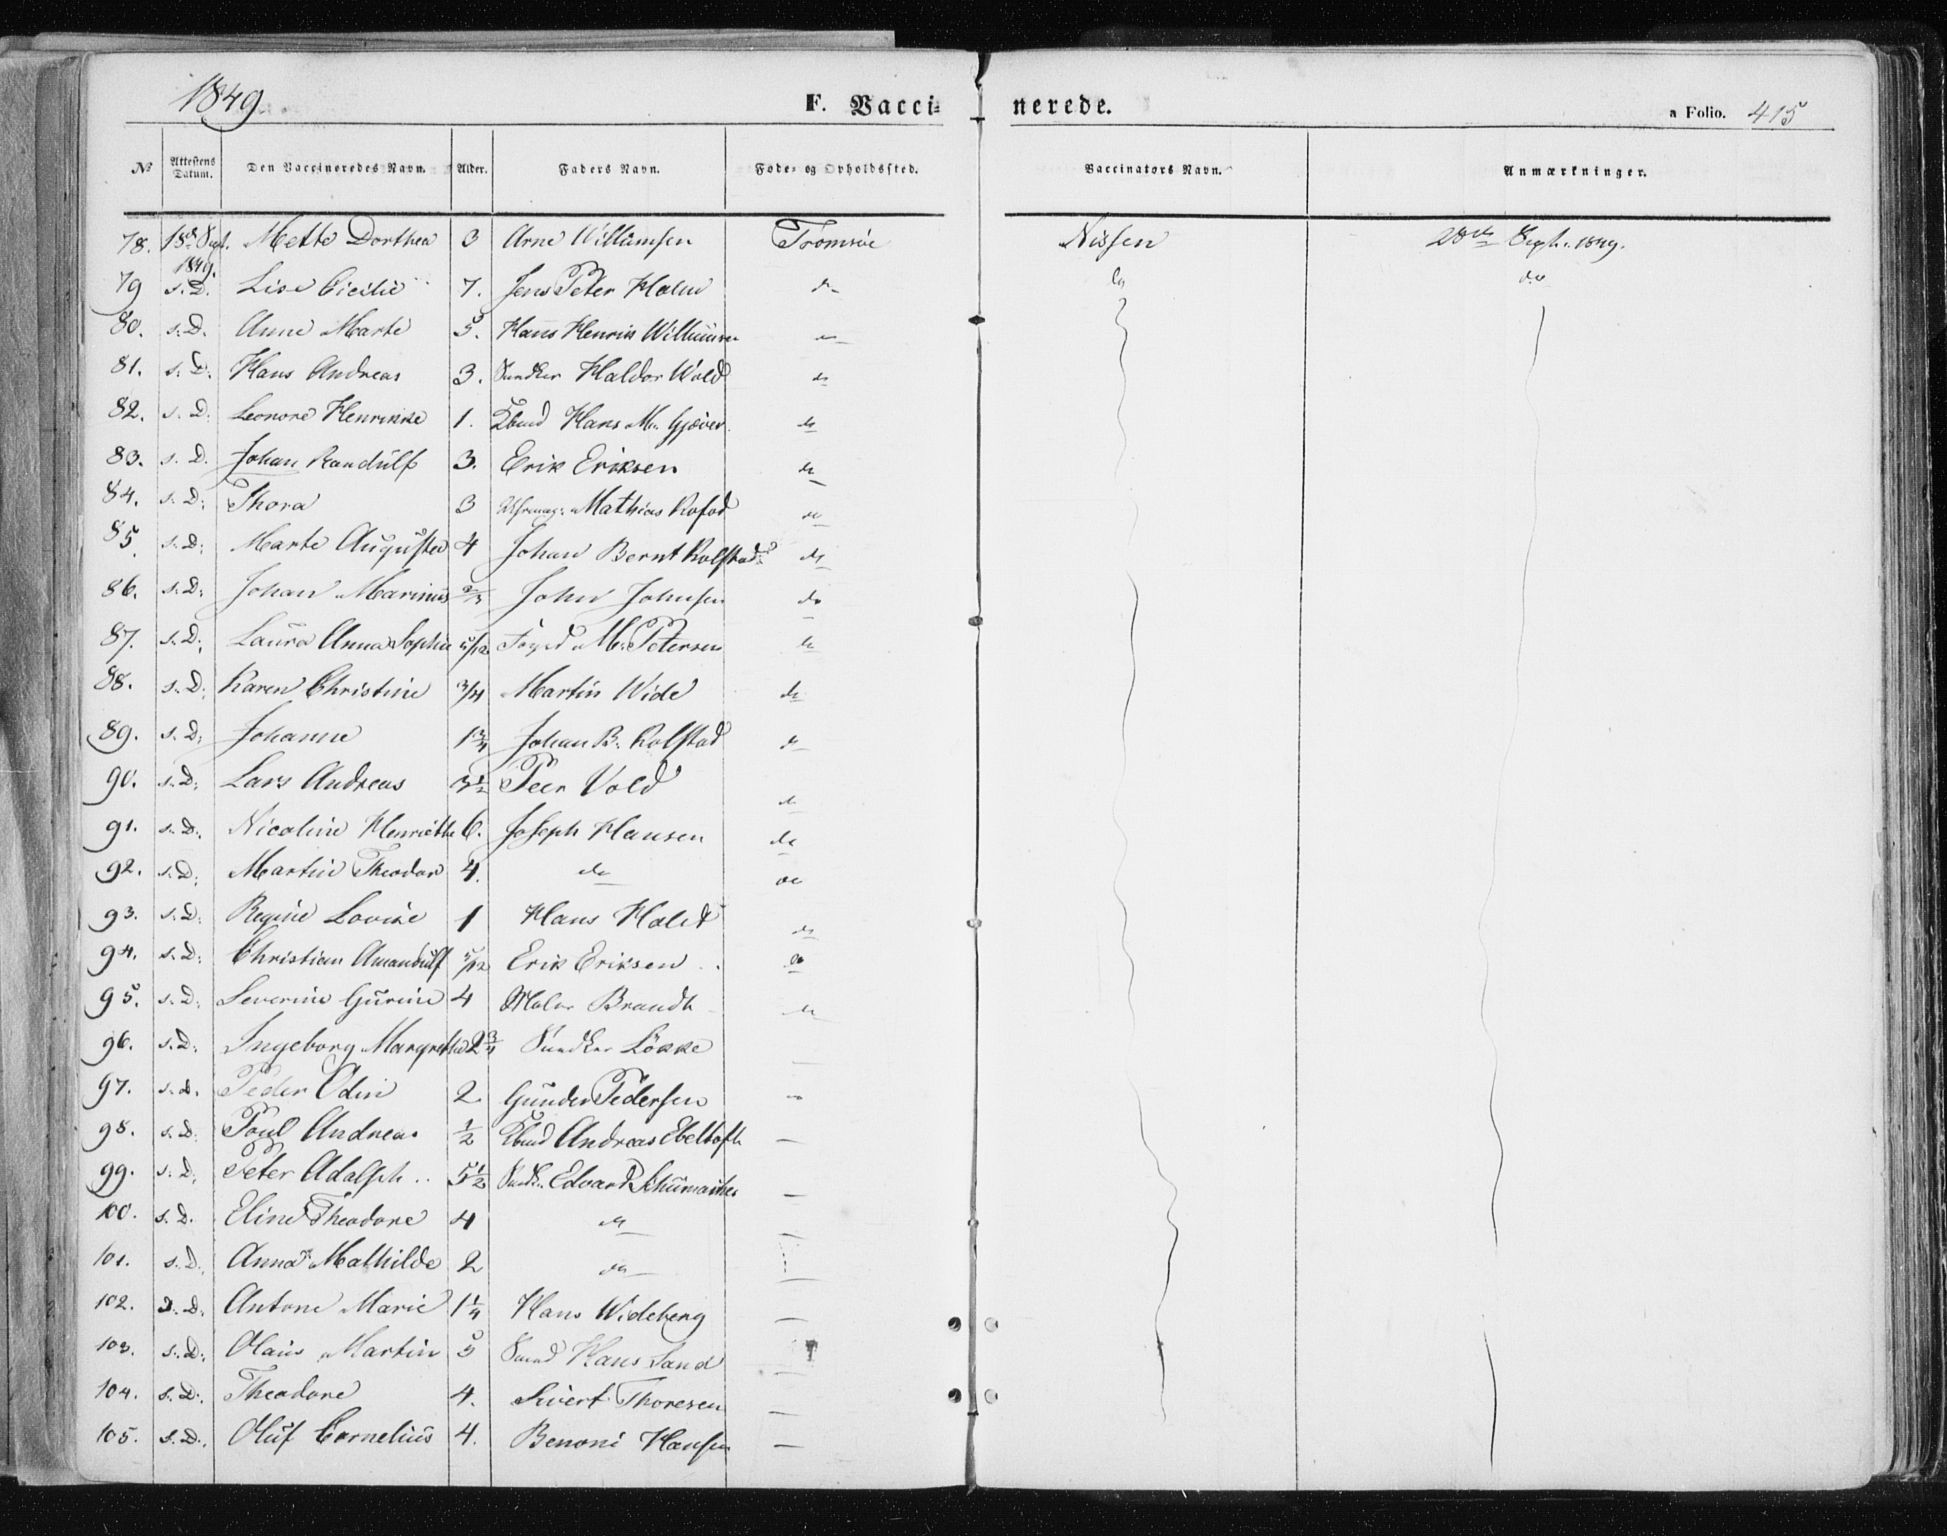 1849
F. Vacci= nerede.
a Folio. 415
No Attestens Datum. Den Vaccineredes Navn. Alder. Faders Navn. Føde- og Opholdssted. Vaccinators Navn. Anmærkninger.
78. 18de Sept. 1849. Mette Dorthea 3 Arne Willumsen Tromsøe Nissen 28de Sept. 1849.
79 s. D. Lise Cicilie 7. Jens Peter Holm do do do
80. s. D. Anne Marte 5. Hans Henrik Willumsen do
81. s. D. Hans Andreas 3. Snedker Haldor Wold do
82. s. D. Leonore Henrikke 1. Kbmd Hans M. Gjæver do
83. s. D. Johan Randulf 3. Erik Eriksen do
84. s. D. Thora 3 Mathias Kofod do
85. s. D. Marte Augusta 4 Johan Bernt Rolfstad do
86. s. D. Johan Marinus 2/3 John Johnsen do
87. s. D. Laura Anna Sophie 5/12 Foged M. Petersen do
88. s. D. Karen Christine 3/4 Martin Wide do
89. s. D. Johanne 1 3/4 Johan B. Rolfstad do
90. s. D. Lars Andreas 3 1/2 Peer Vold do
91. s. D. Nicoline Henriette 6. Joseph Hansen do
92. s. D. Martin Theodor 4. do do
93. s. D. Regine Lovise 1 Hans Holst do
94. s. D. Christian Amandulf 5/12 Erik Eriksen do
95. s. D. Severine Gurine 4 Maler Brandt do
96. s. D. Ingeborg Margrethe 2 3/4 Snedker Løkke —
97. s. D. Peder Odin 2 Gunder Pedersen —
98. s. D. Poul Andreas 1/2 Kbmd Andreas Ebeltoft —
99. s. D. Peter Adolph 5 1/2 Snedk. Edvard Schumacher —
100. s. D. Eline Theodore 4 do —
101. s. D. Anna Mathilde 2 do —
102. s. D. Antone Marie 1 1/4 Hans Wideberg —
103. s. D. Olaus Martin 5 Smed Hans Sand —
104. s. D. Theodore 4. Sivert Thoresen —
105. s. D. Oluf Cornelius 4. Benoni Hansen —